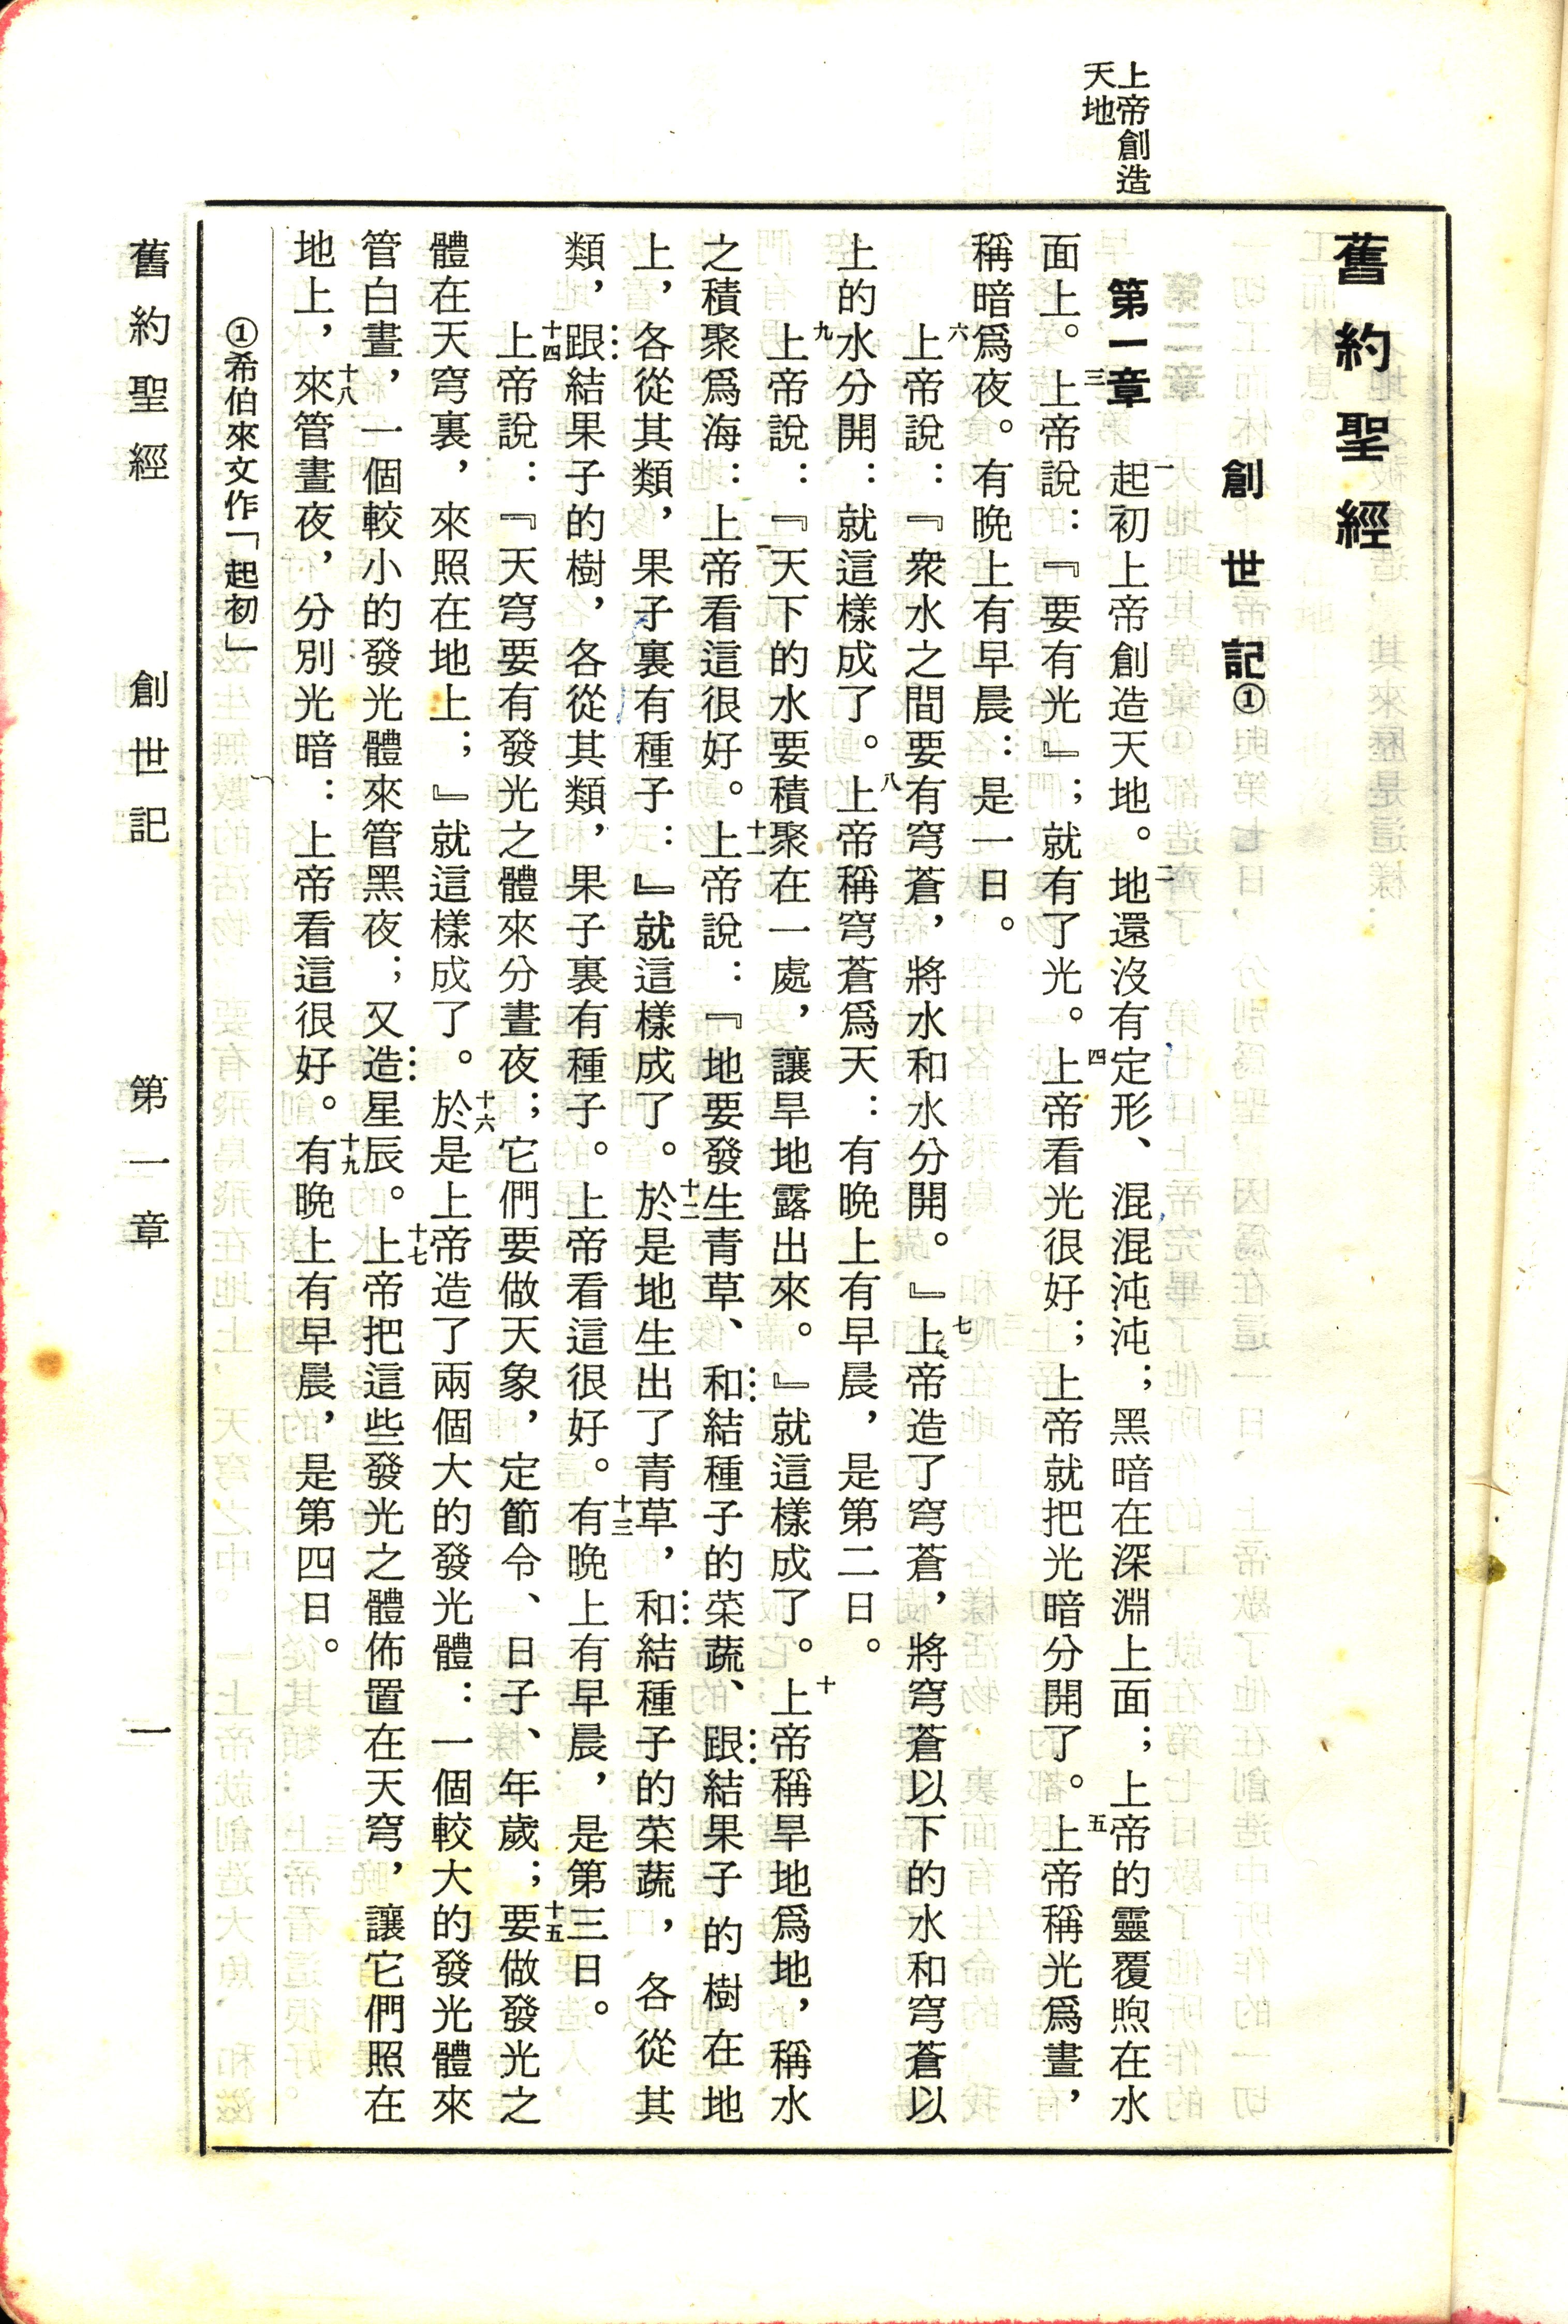 上帝創造
天地
舊約聖經
創世記①
第一章 一起初上帝創造天地。二地還沒有定形、混混沌沌；黑暗在深淵上面；上帝的靈覆煦在水
面上。三上帝說：『要有光』；就有了光。四上帝看光很好；上帝就把光暗分開了。五上帝稱光爲晝，
稱暗爲夜。有晚上有早晨：是一日。
六上帝說：『衆水之間要有穹蒼，將水和水分開。』七上帝造了穹蒼，將穹蒼以下的水和穹蒼以
上的水分開：就這樣成了。八上帝稱穹蒼爲天：有晚上有早晨，是第二日。
九上帝說：『天下的水要積聚在一處，讓旱地露出來。』就這樣成了。十上帝稱旱地爲地，稱水
之積聚爲海：上帝看這很好。十一上帝說：『地要發生青草、和結種子的菜蔬、跟結果子的樹在地
上，各從其類，果子裏有種子：』就這樣成了。十二於是地生出了青草，和結種子的菜蔬，各從其
類，跟結果子的樹，各從其類，果子裏有種子。上帝看這很好。十三有晚上有早晨，是第三日。
十四上帝說：『天穹要有發光之體來分晝夜；它們要做天象，定節令、日子、年歲；十五要做發光之
體在天穹裏，來照在地上；』就這樣成了。十六於是上帝造了兩個大的發光體：一個較大的發光體來
管白晝，一個較小的發光體來管黑夜；又造星辰。十七上帝把這些發光之體佈置在天穹，讓它們照在
地上，十八來管晝夜，分別光暗：上帝看這很好。十九有晚上有早晨，是第四日。
①希伯來文作「起初」
舊約聖經 創世記 第一章 一